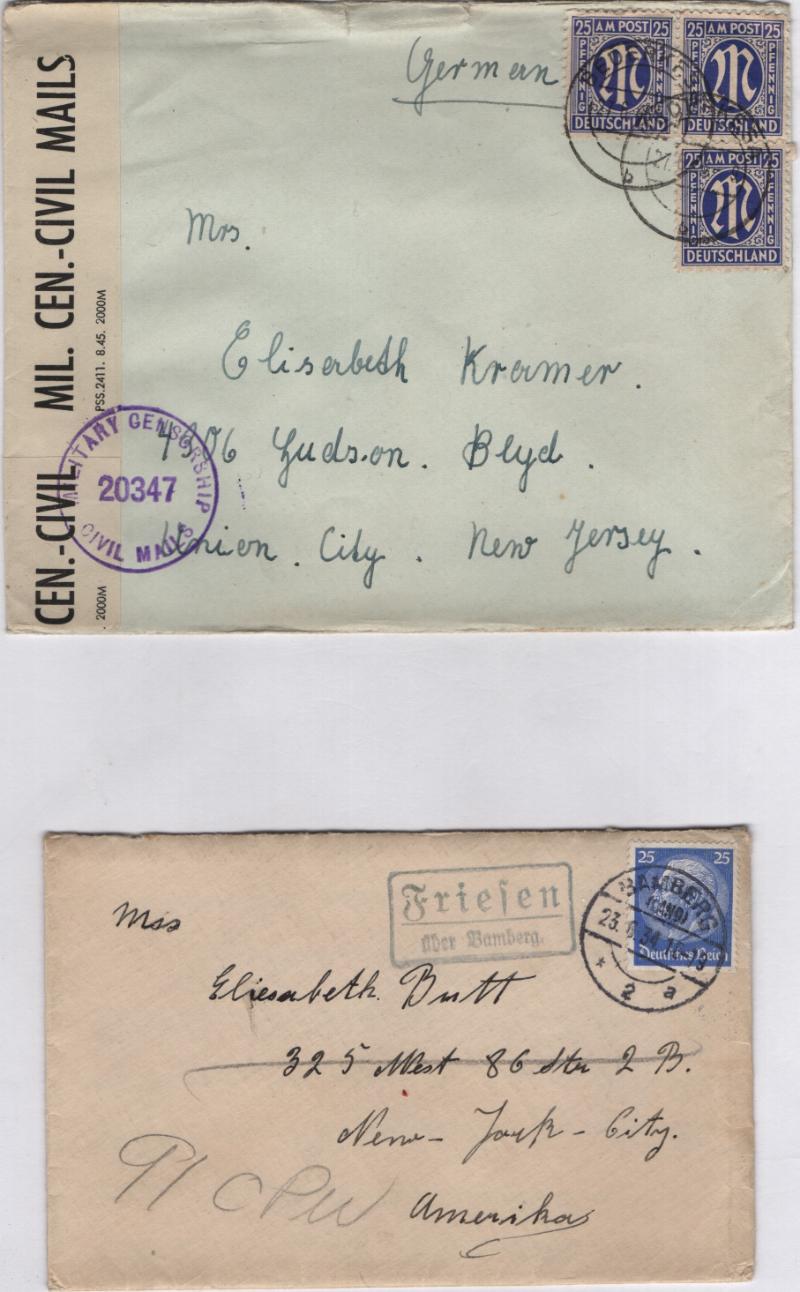 German
25 AM POST 25
PFENNIG PFENNIG
DEUTSCHLAND
25 AM POST 25
PFENNIG PFENNIG
DEUTSCHLAND
25 AM POST 25
PFENNIG PFENNIG
DEUTSCHLAND
b
CEN.-CIVIL MIL. CEN.-CIVIL MAILS
. 2000M PSS.2411. 8.45. 2000M
MILITARY CENSORSHIP
20347
CIVIL MAILS
Mrs.
Elisabeth Kramer.
4906 Hudson. Blvd.
Union. City. New Jersey.
25 25
Deutsches Reich
BAMBERG
(LAND)
23.6.34.18-19
* 2 a
Friesen
über Bamberg.
Miss
Eliesabeth. Butt
325 West 86 Str 2 B.
New-York-City.
Amerika